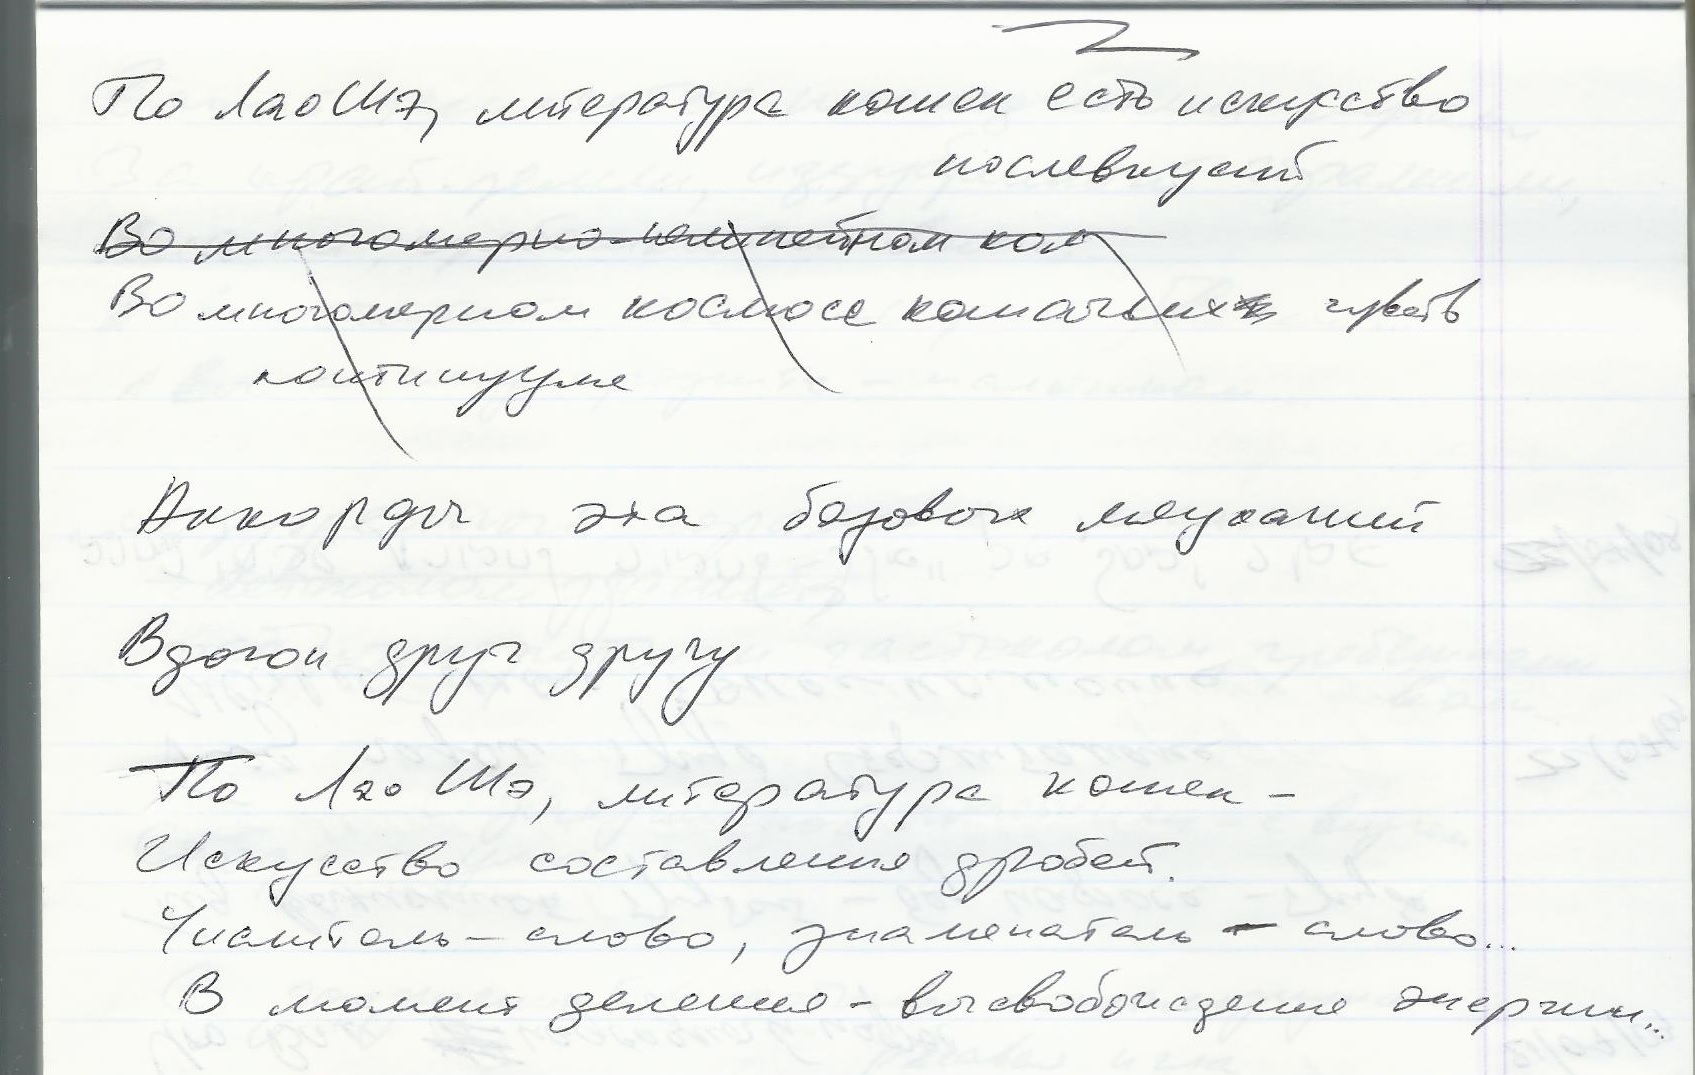 По Лао Шэ, литература кошек есть искусство
послевкусий
Во многомерно-нелинейном кол
Во многомерном космосе кошачьих чувств
континууме
Аккорды эха базовых мяуканий
Вдогон друг другу
По Лао Шэ, литература кошек –
Искусство составления дробей.
Числитель – слово, знаменатель – слово...
В момент деления – высвобождение энергии...